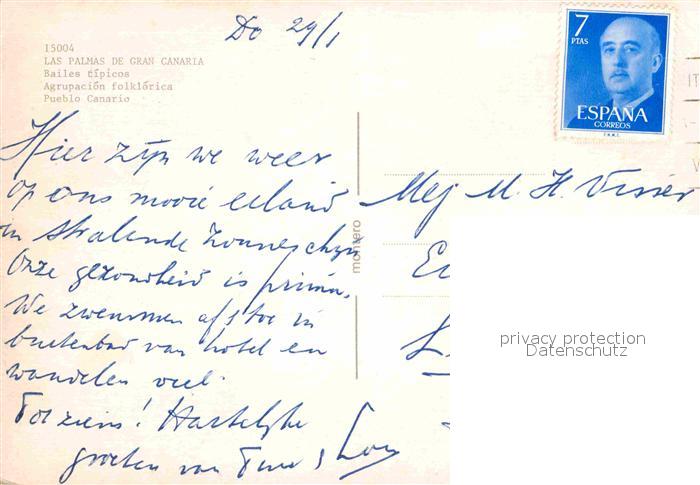 Do 29/1
15004
LAS PALMAS DE GRAN CANARIA
Bailes típicos
Agrupación folklórica
Pueblo Canario
7
PTAS
ESPAÑA
CORREOS
Hier zijn we weer
op ons mooie eiland
in stralende zonneschijn
Onze gezondheid is prima.
We zwemmen af & toe in
buitenbad van hotel en
wandelen veel.
Tot ziens! Hartelijke
groeten van
montero
Mej M. H. Visser
privacy protection
Datenschutz